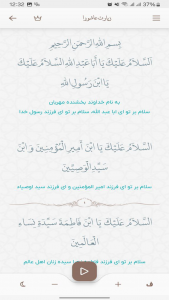 12:32
37%
زیارت عاشورا
بِسْمِ اللَّهِ الرَّحْمَنِ الرَّحِيمِ
اَلسَّلامُ عَلَيْكَ يَا أَبَا عَبْدِ اللَّهِ اَلسَّلامُ عَلَيْكَ
يَا ابْنَ رَسُولِ اللَّهِ
به نام خداوند بخشنده مهربان
سلام بر تو ای ابا عبد الله، سلام بر تو ای فرزند رسول خدا
اَلسَّلامُ عَلَيْكَ يَا ابْنَ أَمِيرِ الْمُؤْمِنِينَ وَ ابْنَ
سَيِّدِ الْوَصِيِّينَ
سلام بر تو ای فرزند امیر المؤمنین و ای فرزند سید اوصیاء
اَلسَّلامُ عَلَيْكَ يَا ابْنَ فَاطِمَةَ سَيِّدَةِ نِسَاءِ
الْعَالَمِينَ
سلام بر تو ای فرزند سیده زنان اهل عالم